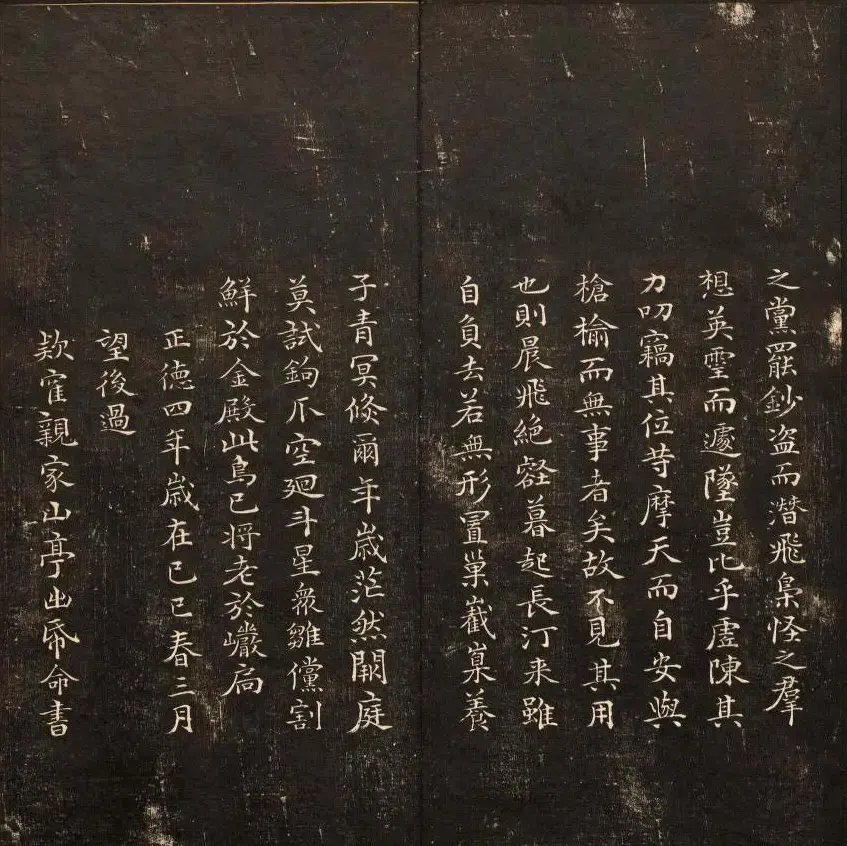 之黨罷鈔盜而潛飛梟怪之羣
想英霊而遽墜豈比乎虛陳其
力叨竊其位等摩天而自安與
槍榆而無事者矣故不見其用
也則晨飛絕壑暮起長汀来雖
自負去若無形置巢嶻嵲養
子青冥倏爾年歲茫然闕庭
莫試鉤爪空迴斗星衆雛儻割
鮮於金殿此鳥已將老於巖扃
正德四年歲在己巳春三月
望後過
款寉親家山亭出帋命書